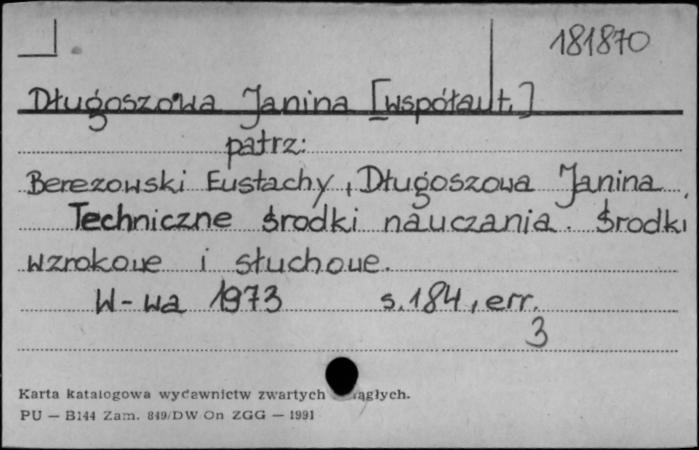 181870
Długoszowa Janina [współaut.]
patrz:
Berezowski Eustachy, Długoszowa Janina.
Techniczne środki nauczania. Środki
wzrokowe i słuchowe.
W-wa 1973 s. 184, err.
3
Karta katalogowa wydawnictw zwartych
PU — B144 Zam. 849/DW On ZGG — 1991